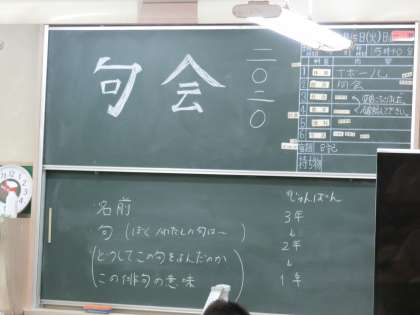 句会
二〇二〇
5日(火)
1
Tホール
2
句会
3
4
5
6
宿題 日記
持ち物
名前
句(ぼく/わたしの句は〜)
(どうしてこの句をよんだのか
この俳句の意味)
じゅんばん
3年
↓
2年
↓
1年